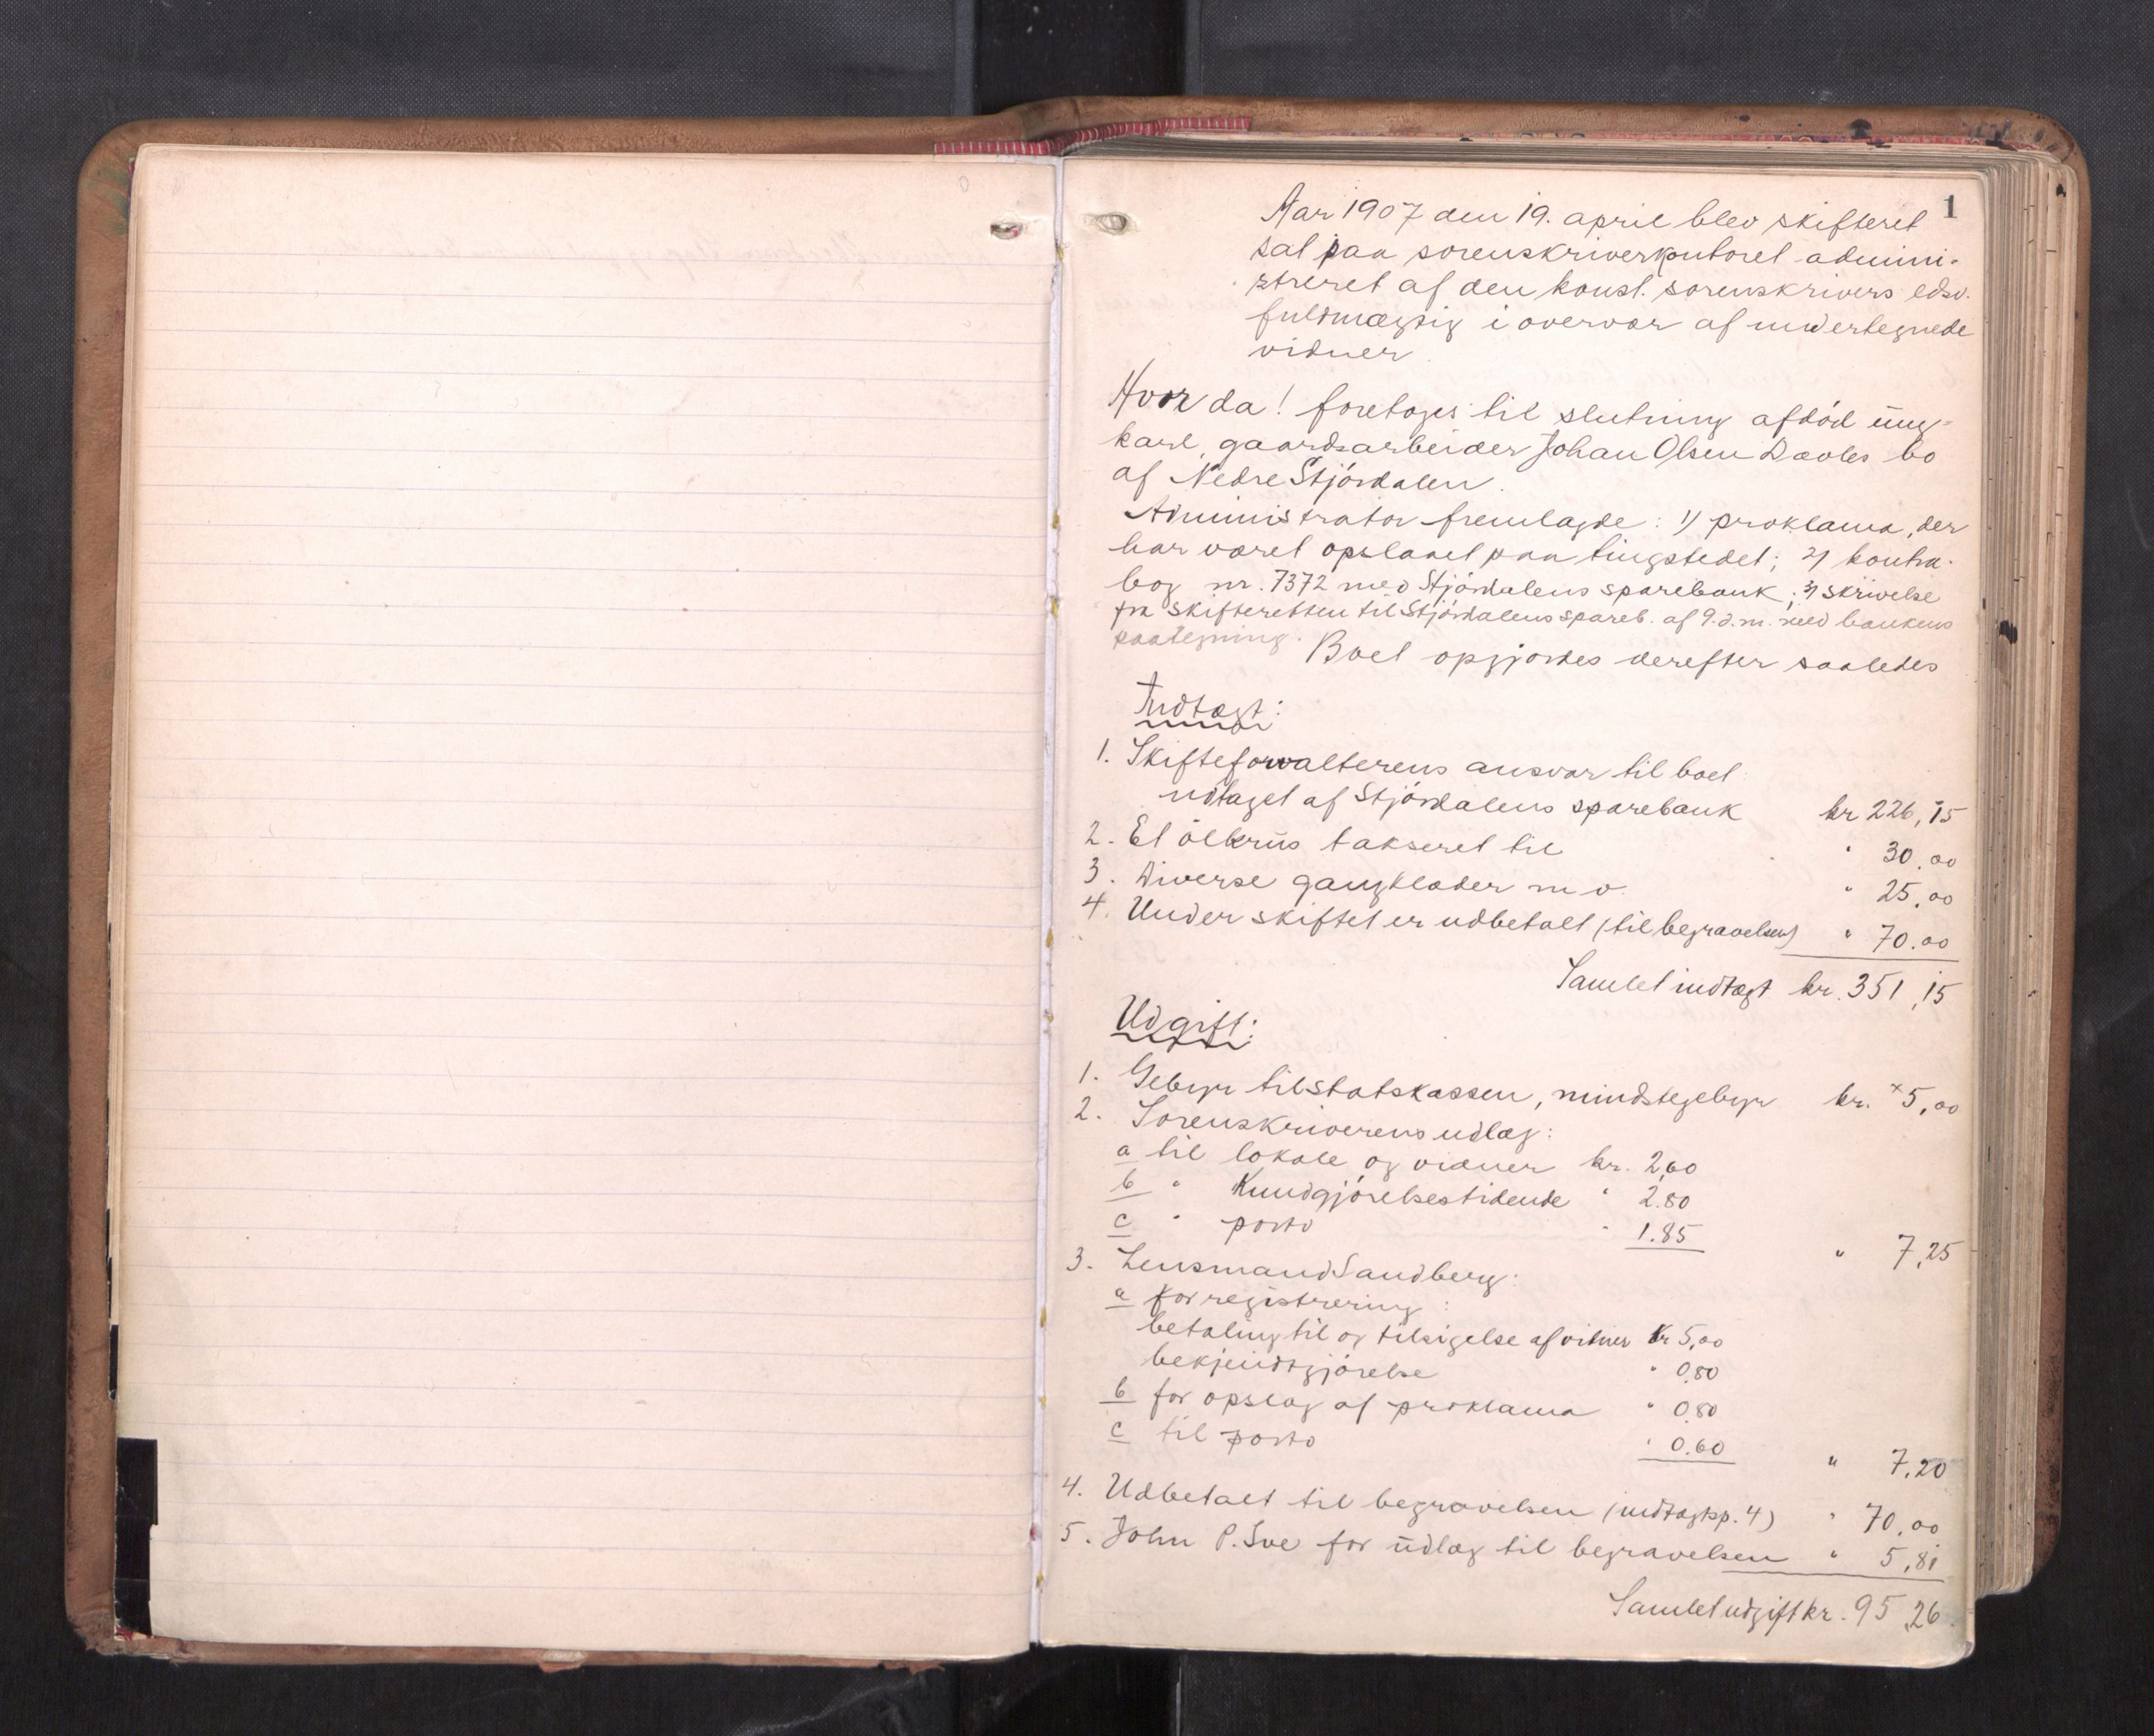 1
Aar 1907 den 19. april blev skifteret
sat paa sorenskriverkontoret admini-
streret af den konst. sorenskrivers edsv.
fuldmægtig i overvær af undertegnede
vidner
Hvor da! foretoges til slutning afdød ung-
karl, gaardsarbeider Johan Olsen Davles bo
af Nedre Stjördalen.
Administrator fremlagde: 1) proklama, der
har været opslaaet paa tingstedet; 2) kontra-
bog nr. 7372 med Stjördalens sparebank; 3) skrivelse
fra skifteretten til Stjördalens spareb. af 9.d.m. med bankens
paategning. Boet opgjordes derefter saaledes
Indtægt:
1. Skifteforvalterens ansvar til boet
udtaget af Stjördalens sparebank kr 226,15
2. Et ölkrus takseret til " 30.00
3. Diverse gangklæder m v. " 25,00
4. Under skiftet er udbetalt (til begravelsen) " 70.00
Samlet indtægt kr. 351,15
Udgift:
1. Gebyr til statskassen, mindstegebyr kr. ×5,00
2. Sorenskriverens udlæg:
a til lokale og vidner kr. 2,60
b " Kundgjörelsestidende " 2.80
c " porto " 1.85 " 7,25
3. Lensmand Sandberg:
a for registrering:
betaling til og tilsigelse af vidner kr 5,00
bekjendtgjörelse " 0,80
b for opslag af proklama " 0,80
c til porto " 0.60 " 7,20
4. Udbetalt til begravelsen (indtægtsp. 4) " 70,00
5. John P. Sve for udlæg til begravelsen " 5,81
Samlet udgift kr. 95,26